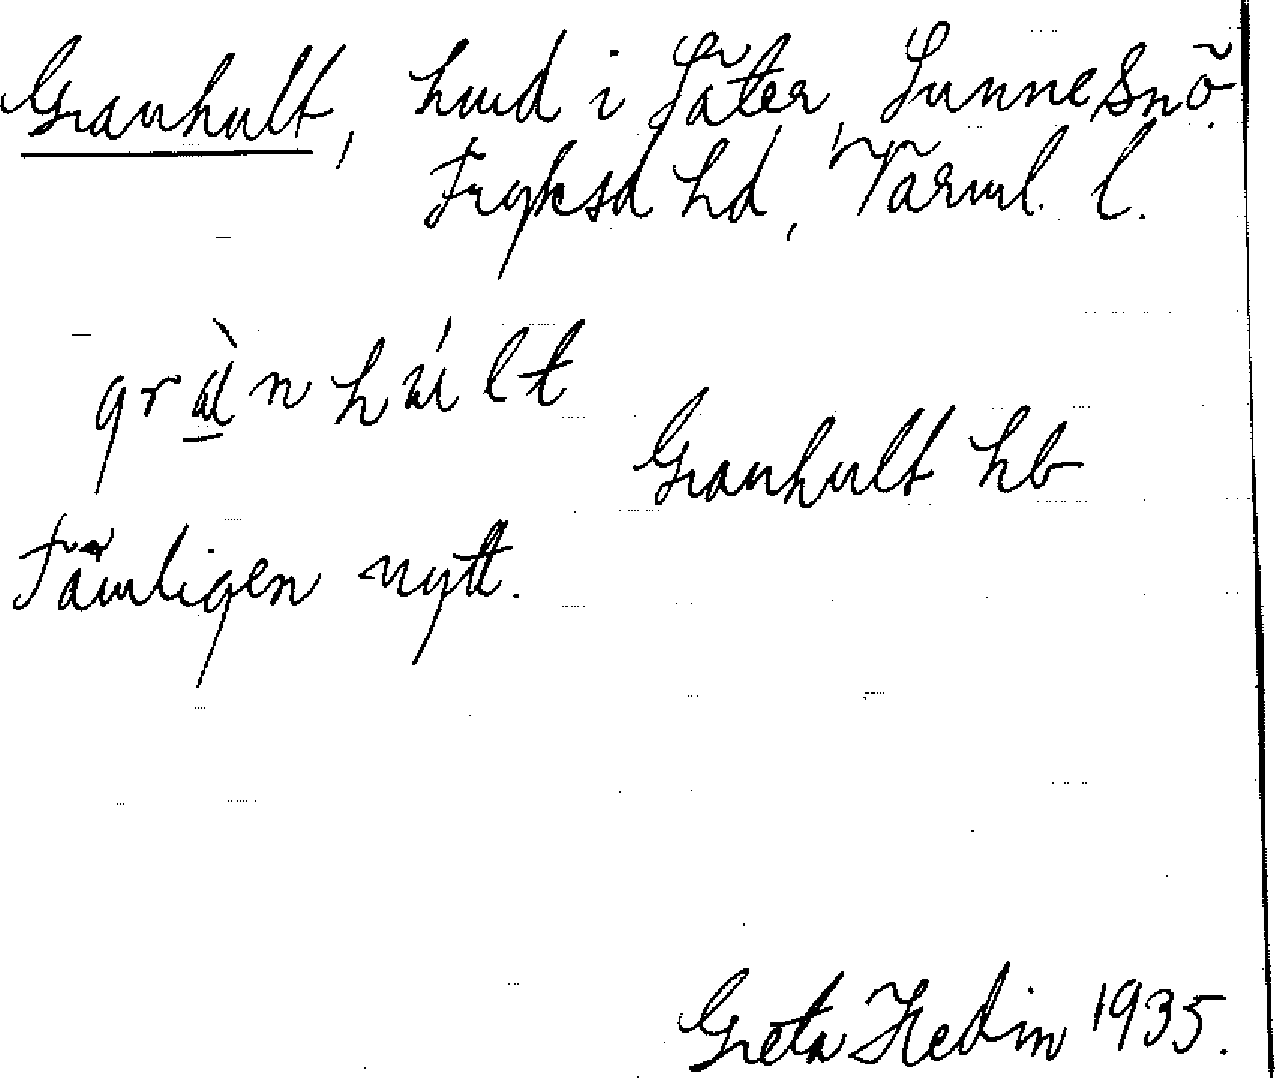 Granhult, hmd i Säter, Sunne Snö.
Fryksd hd, Värml. l.
grànhúlt
Granhult hb
Tämligen nytt.
Greta Hedin 1935.